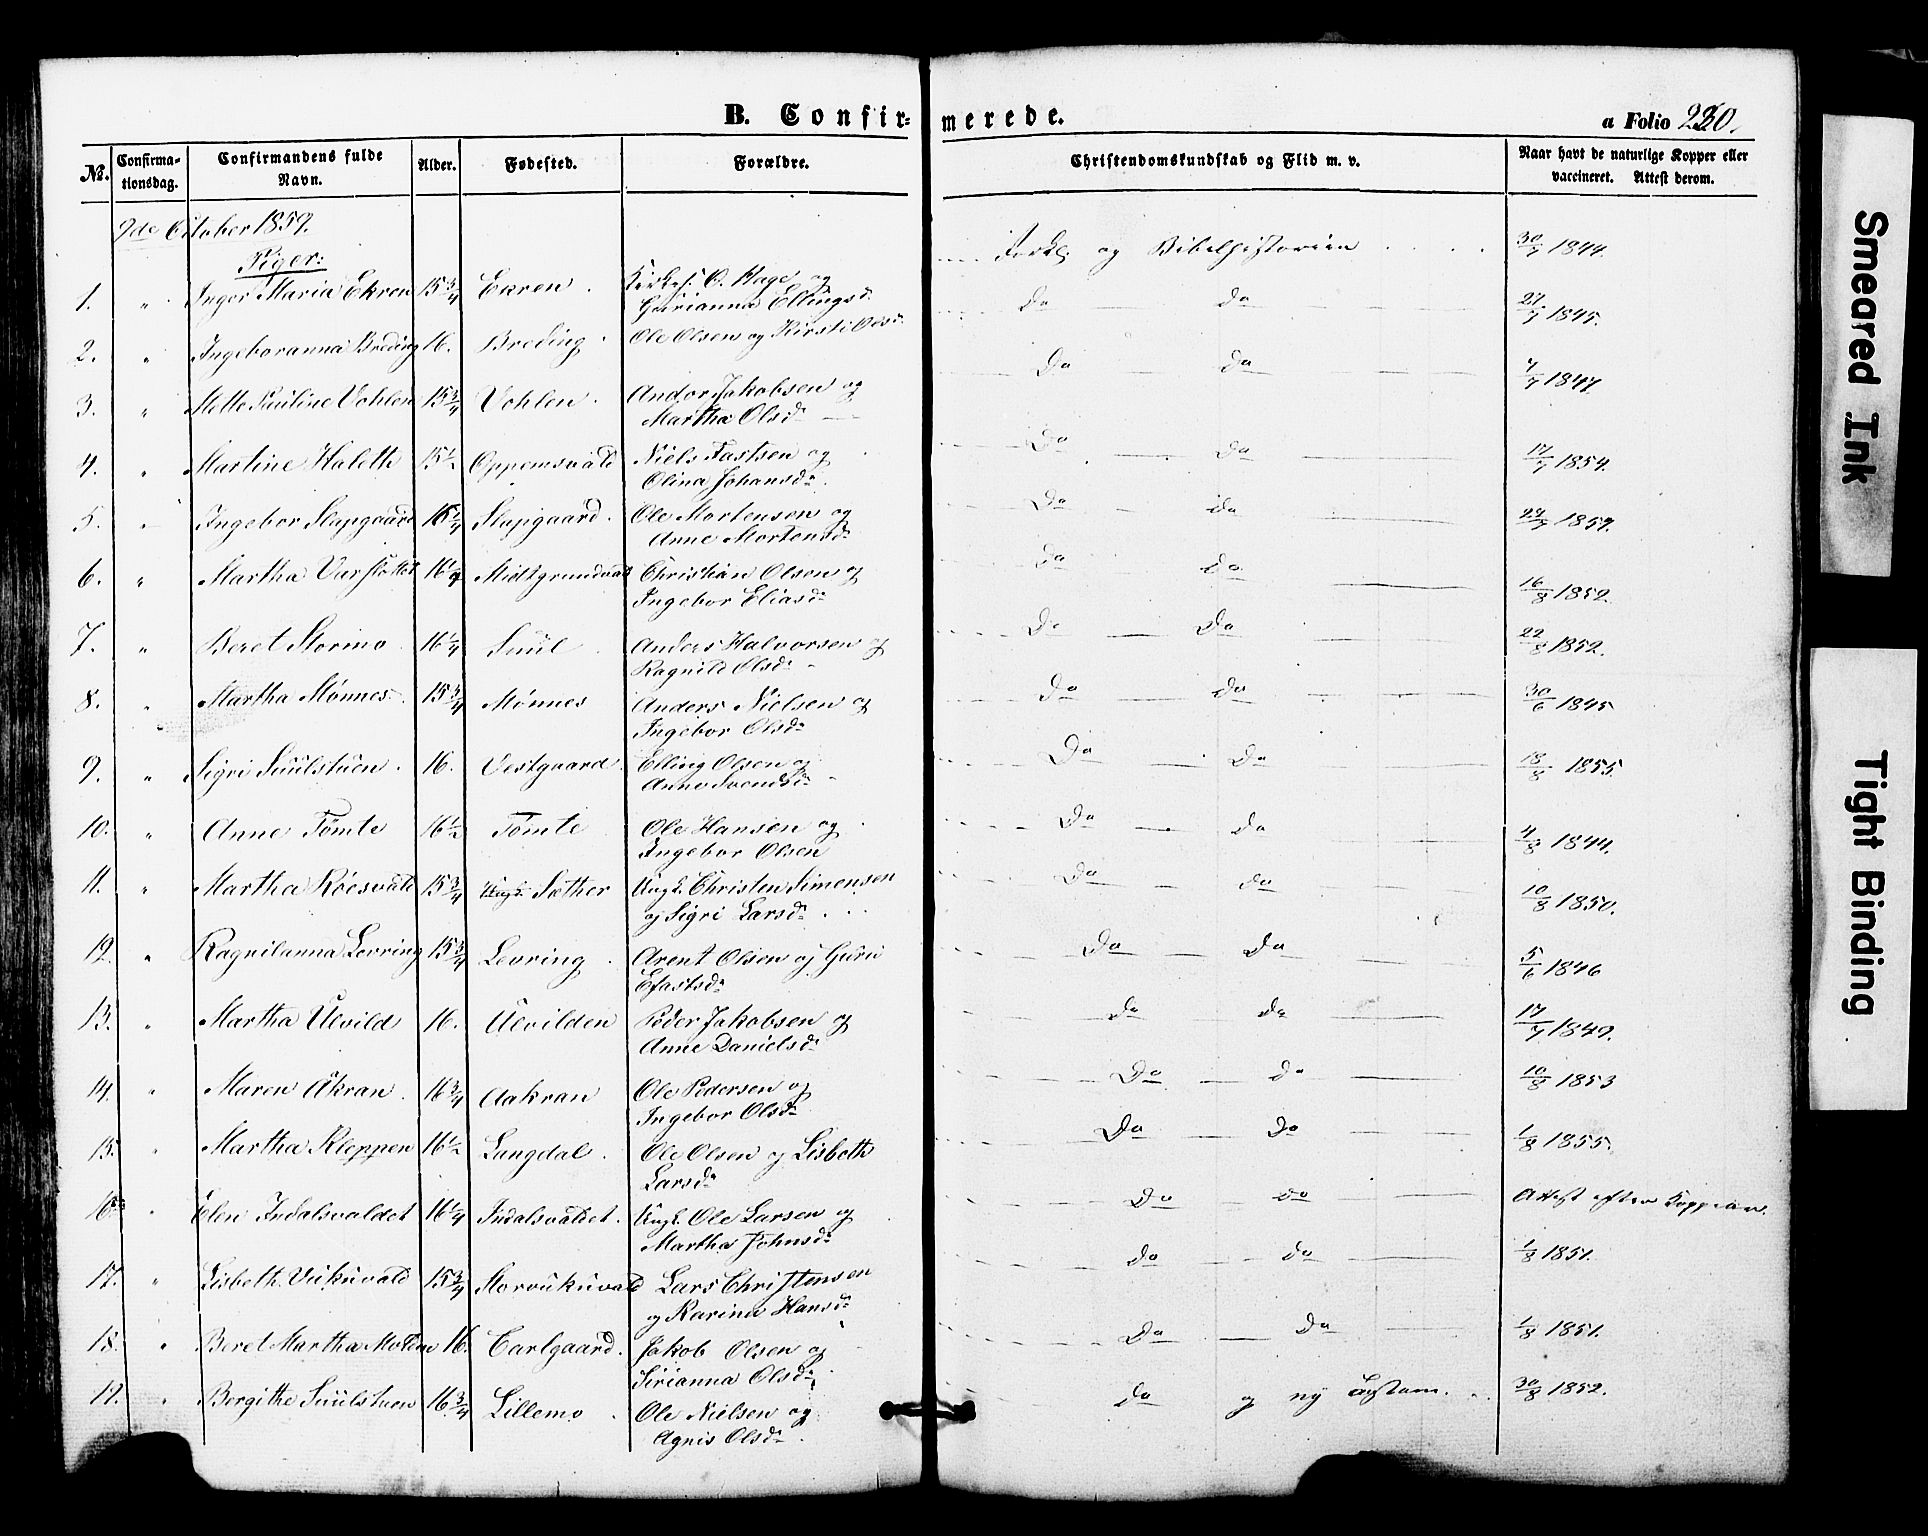 B. Confirmerede.
a Folio 230.
No. Confirmationsdag. Confirmandens fulde Navn. Alder. Fødested. Forældre. Christendomskundskab og Flid m. v. Naar havt de naturlige Kopper eller vaccineret. Attest derom.
9de October 1859.
Piger:
1. " Inger Maria Ekren 15 3/4 Ekren. O. Hage og Ellingsd. og Bibelhistorien 30/7 1844.
2. " Ingeboranna Breding 16. Breding. Ole Olsen og Kirsti Olsd. Do Do 27/7 1845.
3. " Mette Pauline Vohlen 15 3/4 Vohlen. Andor Jakobsen og Martha Olsd. Do Do 7/7 1847.
4. " Martine Haleth 15 1/2 Oppemsvald Niels Fastsen og Olina Johansd. Do Do 17/7 1854.
5. " Ingebor Slapgaard 16 1/4 Slapgaard. Ole Mortensen og Anne Mortensd. Do Do 1859.
6. " Martha 16 1/4 Christian Olsen og Ingebor Eliasd. Do Do 16/8 1852.
7. " Beret Stormo 16 1/4 Suul Anders Halvorsen og Ragnild Olsd. Do Do 22/8 1852.
8. " Martha Mønnes. 15 3/4 Mønnes Anders Nielsen og Ingebor Olsd. Do Do 30/6 1845
9. " Sigri Suulstuen. 16. Vestgaard. Elling Olsen og Anne Svendsd. Do Do 18/8 1855.
10. " Anne Tømte 16 1/2 Tømte Ole Hansen og Ingebor Olsen Do Do 4/8 1844.
11. " Martha Röesvald 15 3/4 Sæther Ungk. Christen Simensen og Sigri Larsd. Do Do 10/8 1850.
12. " Ragnilanna Levring 15 3/4 Levring. Arent Olsen og Guru Efastsd. Do Do 5/6 1846
13. " Martha Ulvild 16. Ulvilden Peder Jakobsen og Anne Danielsd. Do Do 17/7 1849.
14. " Maren Åkran. 16 3/4 Aakran Ole Pedersen og Ingebor Olsd. Do Do 10/8 1853
15. " Martha Kleppen 16 1/2 Langdal. Ole Olsen og Lisbeth Larsd. Do Do 1/8 1855.
16. " Elen Indalsvaldet 16 1/4 Indalsvaldet. Ungk. Ole Larsen og Martha Johnsd. Do Do Attest efter
17. " Lisbeth Vukuvald 15 3/4 Storvukuvald Lars Christensen og Karina Hansd. Do Do 1/8 1851.
18. " Beret Martha 16. Carlgaard. Jakob Olsen og Sirianna Olsd. Do Do 1/8 1851.
19. " Bergithe Suulstuen 16 3/4 Lillemo. Ole Nielsen og Agnis Olsd. Do og ny 30/8 1852.
Smeared Ink
Tight Binding